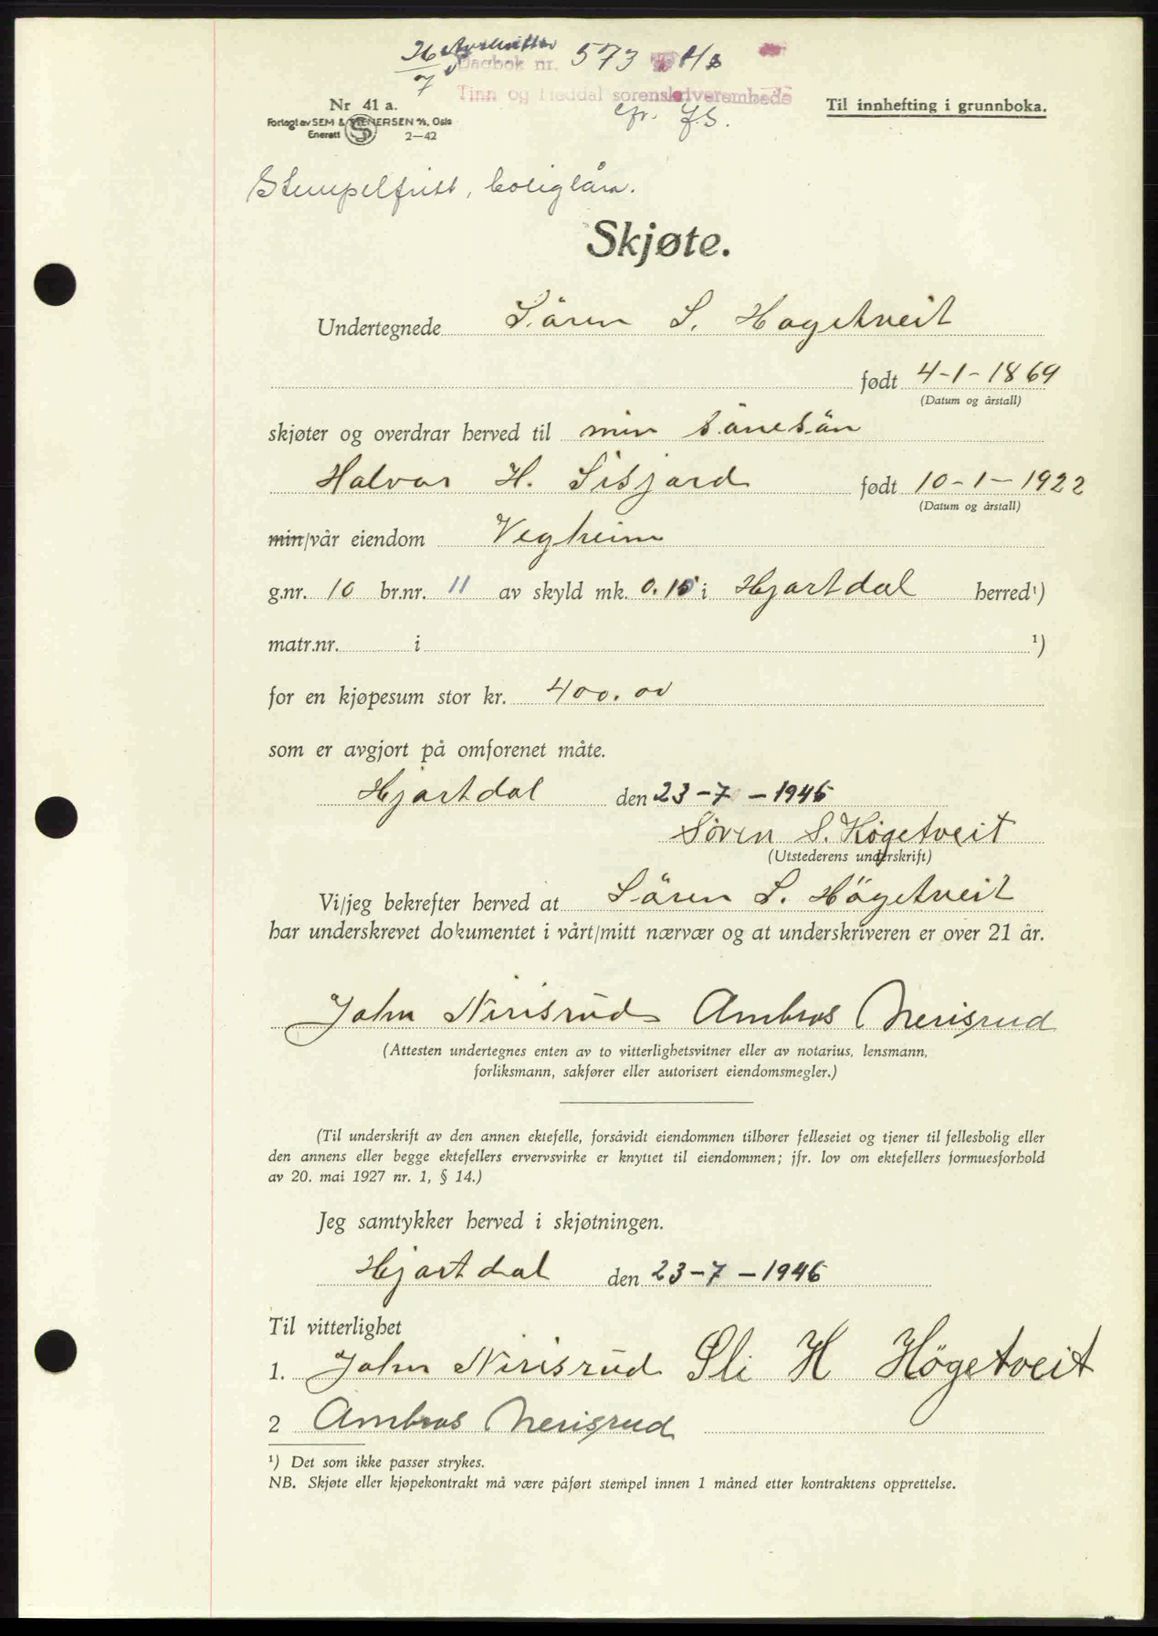 26/7 Avskrift
Dagbok nr. 573
Tinn og Heddal sorenskriverembede
Nr 41 a.
Forlagt av SEM & STENERSEN A/S, Oslo
Enerett 2—42
Til innhefting i grunnboka.
Stempelfritt, boliglån.
Skjøte.
Undertegnede Sören S. Hagetveit
født 4-1-1869
(Datum og årstall)
skjøter og overdrar herved til min sönesön
Halvor H. Sisjord født 10-1-1922
(Datum og årstall)
min/vår eiendom Vegheim
g.nr. 10 br.nr. 11 av skyld mk. 0.15 i Hjartdal herred¹)
matr.nr. i ¹)
for en kjøpesum stor kr. 400.00
som er avgjort på omforenet måte.
Hjartdal den 23-7-1946
Søren S. Høgetveit
(Utstederens underskrift)
Vi/jeg bekrefter herved at Sören S. Högetveit
har underskrevet dokumentet i vårt/mitt nærvær og at underskriveren er over 21 år.
John Nirisrud Ambros Nerisrud
(Attesten undertegnes enten av to vitterlighetsvitner eller av notarius, lensmann,
forliksmann, sakfører eller autorisert eiendomsmegler.)
(Til underskrift av den annen ektefelle, forsåvidt eiendommen tilhører felleseiet og tjener til fellesbolig eller
den annens eller begge ektefellers ervervsvirke er knyttet til eiendommen; jfr. lov om ektefellers formuesforhold
av 20. mai 1927 nr. 1, § 14.)
Jeg samtykker herved i skjøtningen.
Hjartdal den 23-7-1946
Til vitterlighet
1. John Nirisrud Sli H Högetveit
2 Ambros Nerisrud
¹) Det som ikke passer strykes.
NB. Skjøte eller kjøpekontrakt må være påført stempel innen 1 måned etter kontraktens opprettelse.